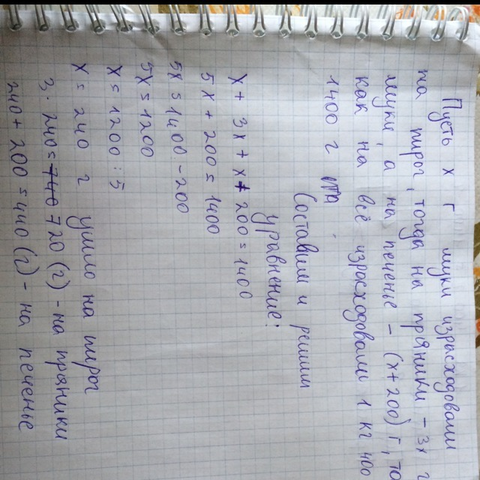 Пусть х г муки израсходовали
на пирог, тогда на пряники - 3х г
муки, а на печенье - (х+200) г, то
как на всё израсходовали 1 кг 400
1400 г
Составим и решим
уравнение:
х + 3х + х + 200 = 1400
5х + 200 = 1400
5х = 1400 - 200
5х = 1200
х = 1200 : 5
х = 240 г ушло на пирог
3 · 240 = 740 720 (г) - на пряники
240 + 200 = 440 (г) - на печенье